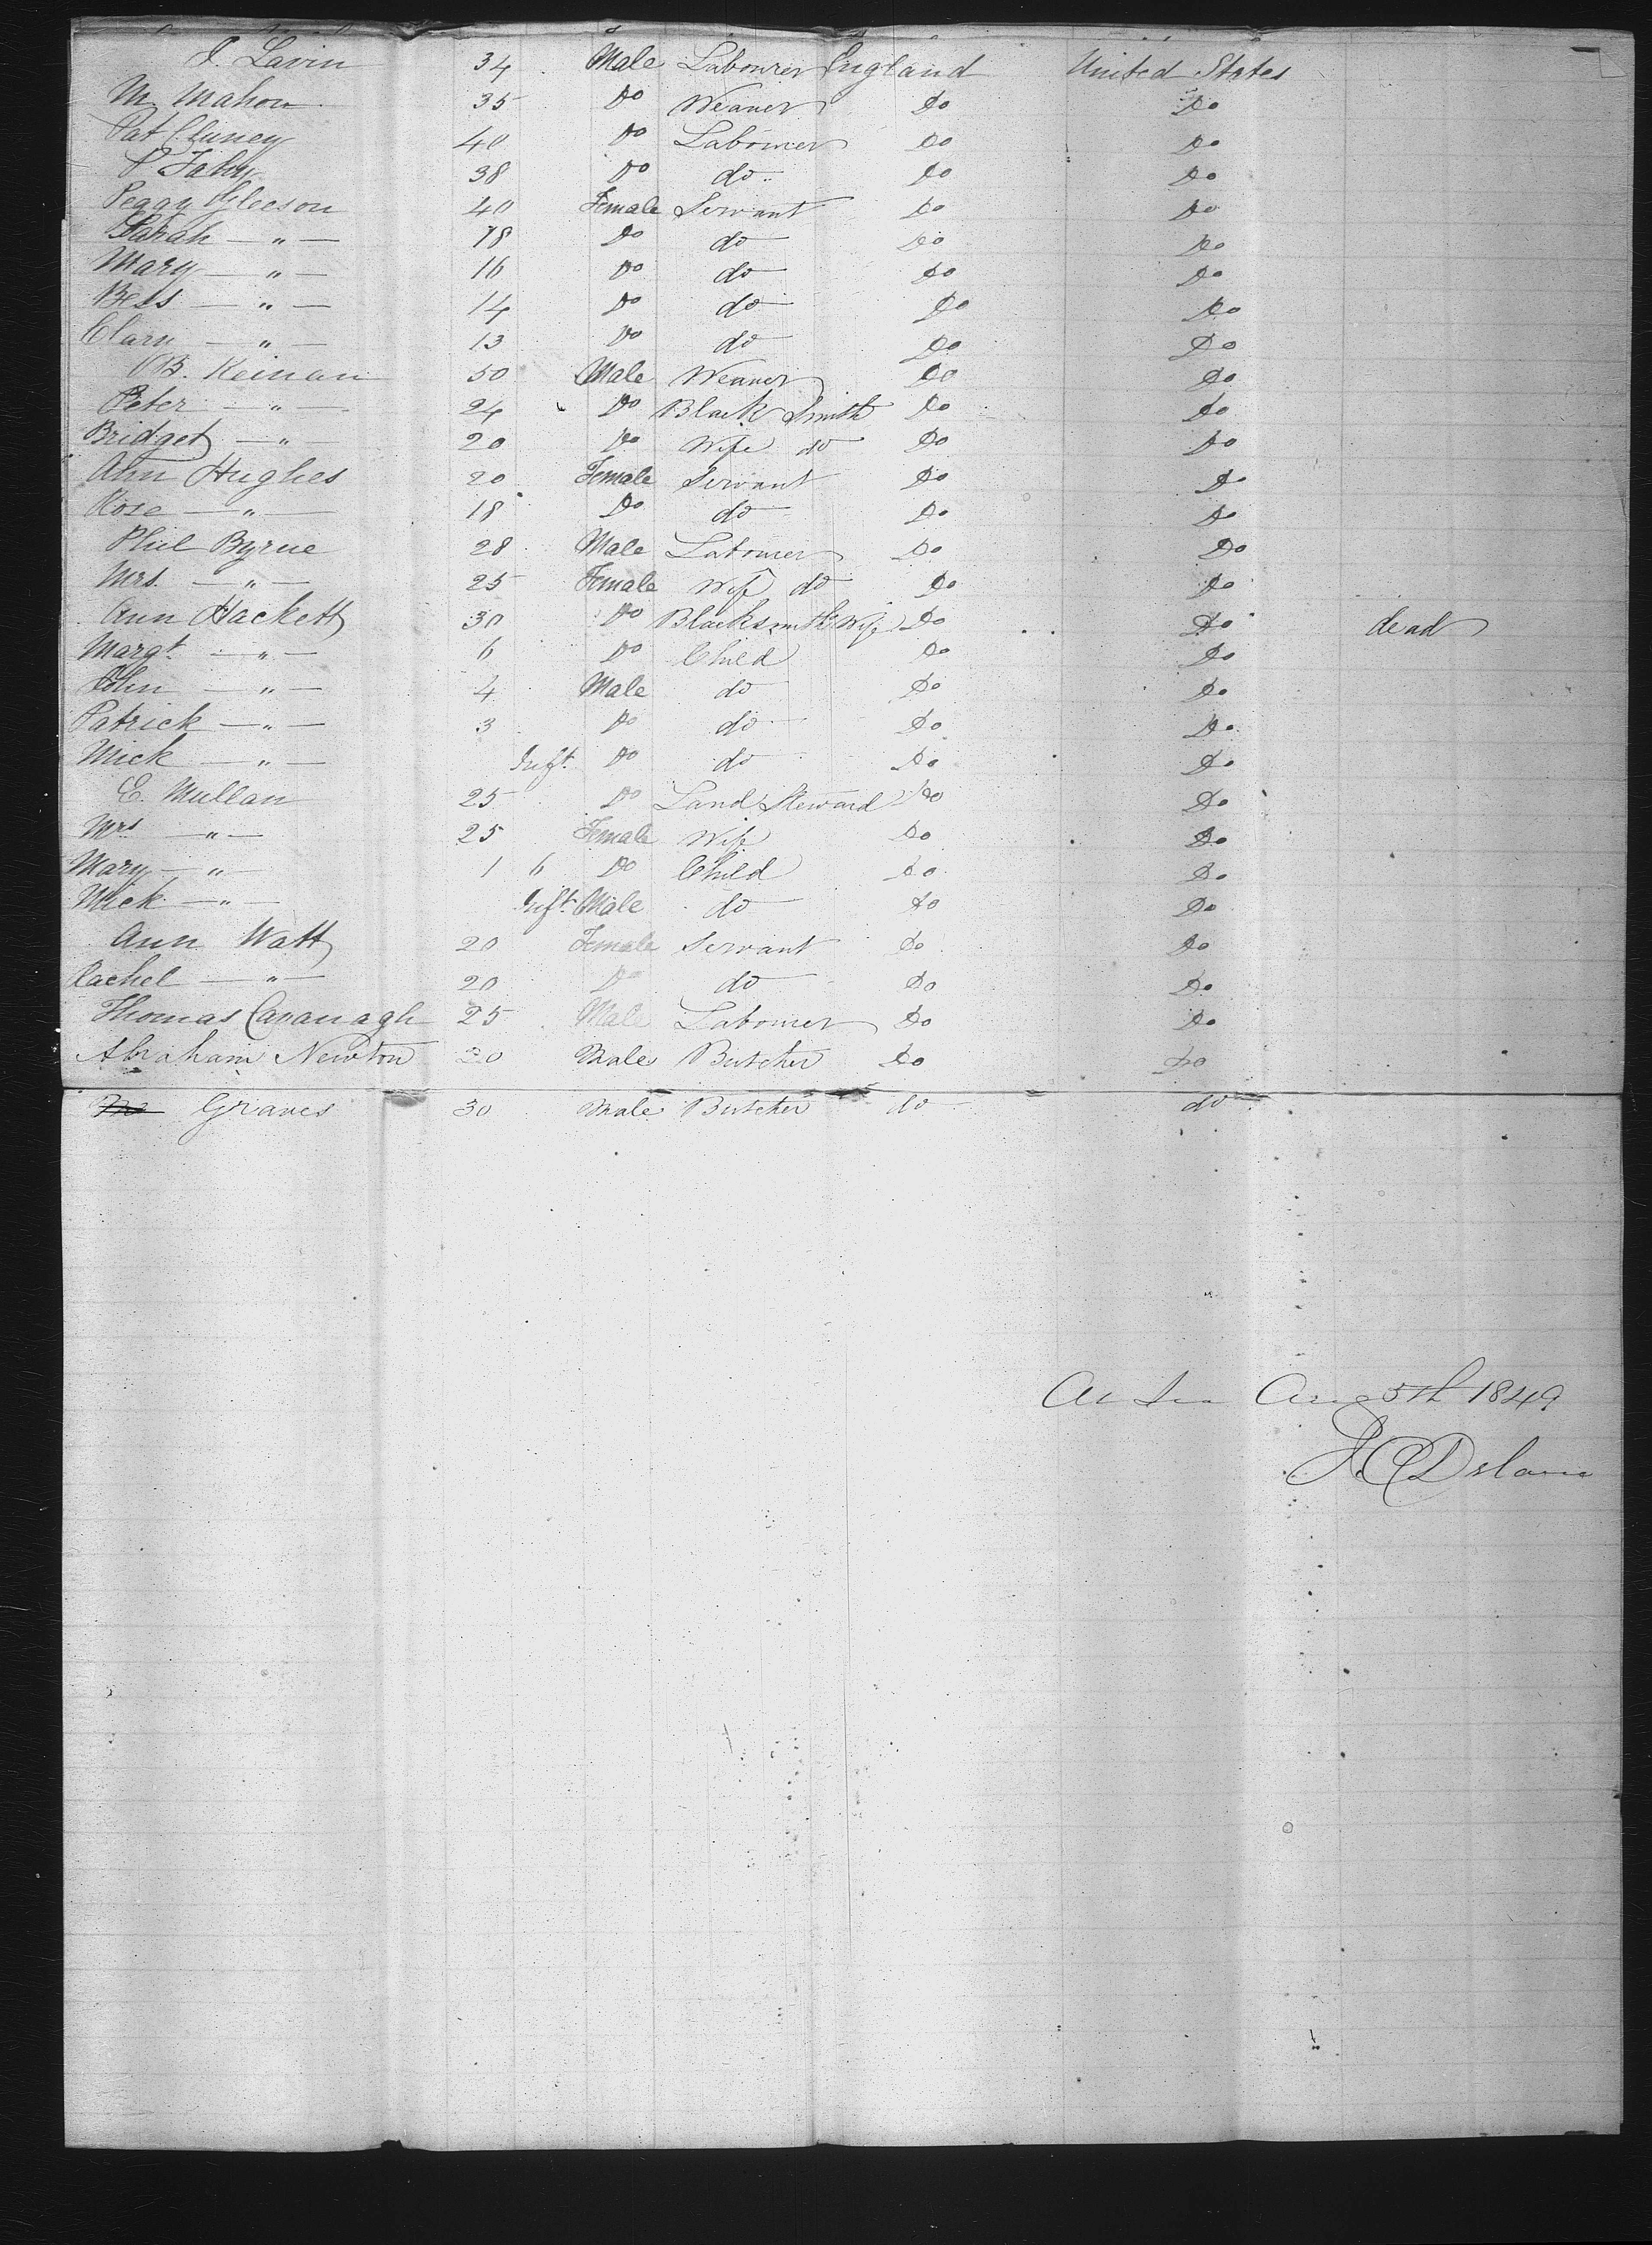 J. Lavin 34 Male Labourer England United States
M. Mahon 35 Do Weaver Do Do
Pat Cluney 40 Do Labourer Do Do
P. Fahy 38 Do do Do Do
Peggy Gleeson 40 Female Servant Do Do
Sarah — " — 18 Do do Do Do
Mary — " — 16 Do do Do Do
Bess — " — 14 Do do Do Do
— " — 13 Do do Do Do
B. Keinan 50 Male Weaver Do Do
Peter — " — 24 Do Black Smith Do Do
Bridget — " — 20 Do Wife do Do Do
Ann Hughes 20 Female Servant Do Do
Rose — " — 18 Do do Do Do
Phil Byrne 28 Male Labourer Do Do
Mrs. — " — 25 Female Wife do Do Do
Ann Hackett 30 Do Blacksmiths Wife Do Do dead
Margt. — " — 6 Do Child Do Do
John — " — 4 Male do Do Do
Patrick — " — 3 Do do Do Do
Mick — " — Inft. Do do Do Do
E. Mullan 25 Do Land Steward Do Do
Mrs — " — 25 Female Wife Do Do
Mary — " — 1 6 Do Child Do Do
Mick — " — Inft. Male do Do Do
Ann Watt 20 Female Servant Do Do
Rachel — " — 20 Do do Do Do
Thomas Cavanagh 25 Male Labourer Do Do
Abraham Newton 20 Male Butcher Do Do
Graves 30 Male Butcher do do
At Sea Aug 5th 1849